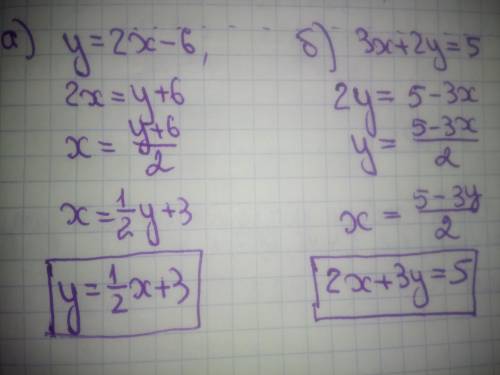 а) y=2x-6,
2x=y+6
x=\frac{y+6}{2}
x=\frac{1}{2}y+3
y=\frac{1}{2}x+3
б) 3x+2y=5
2y=5-3x
y=\frac{5-3x}{2}
x=\frac{5-3y}{2}
2x+3y=5